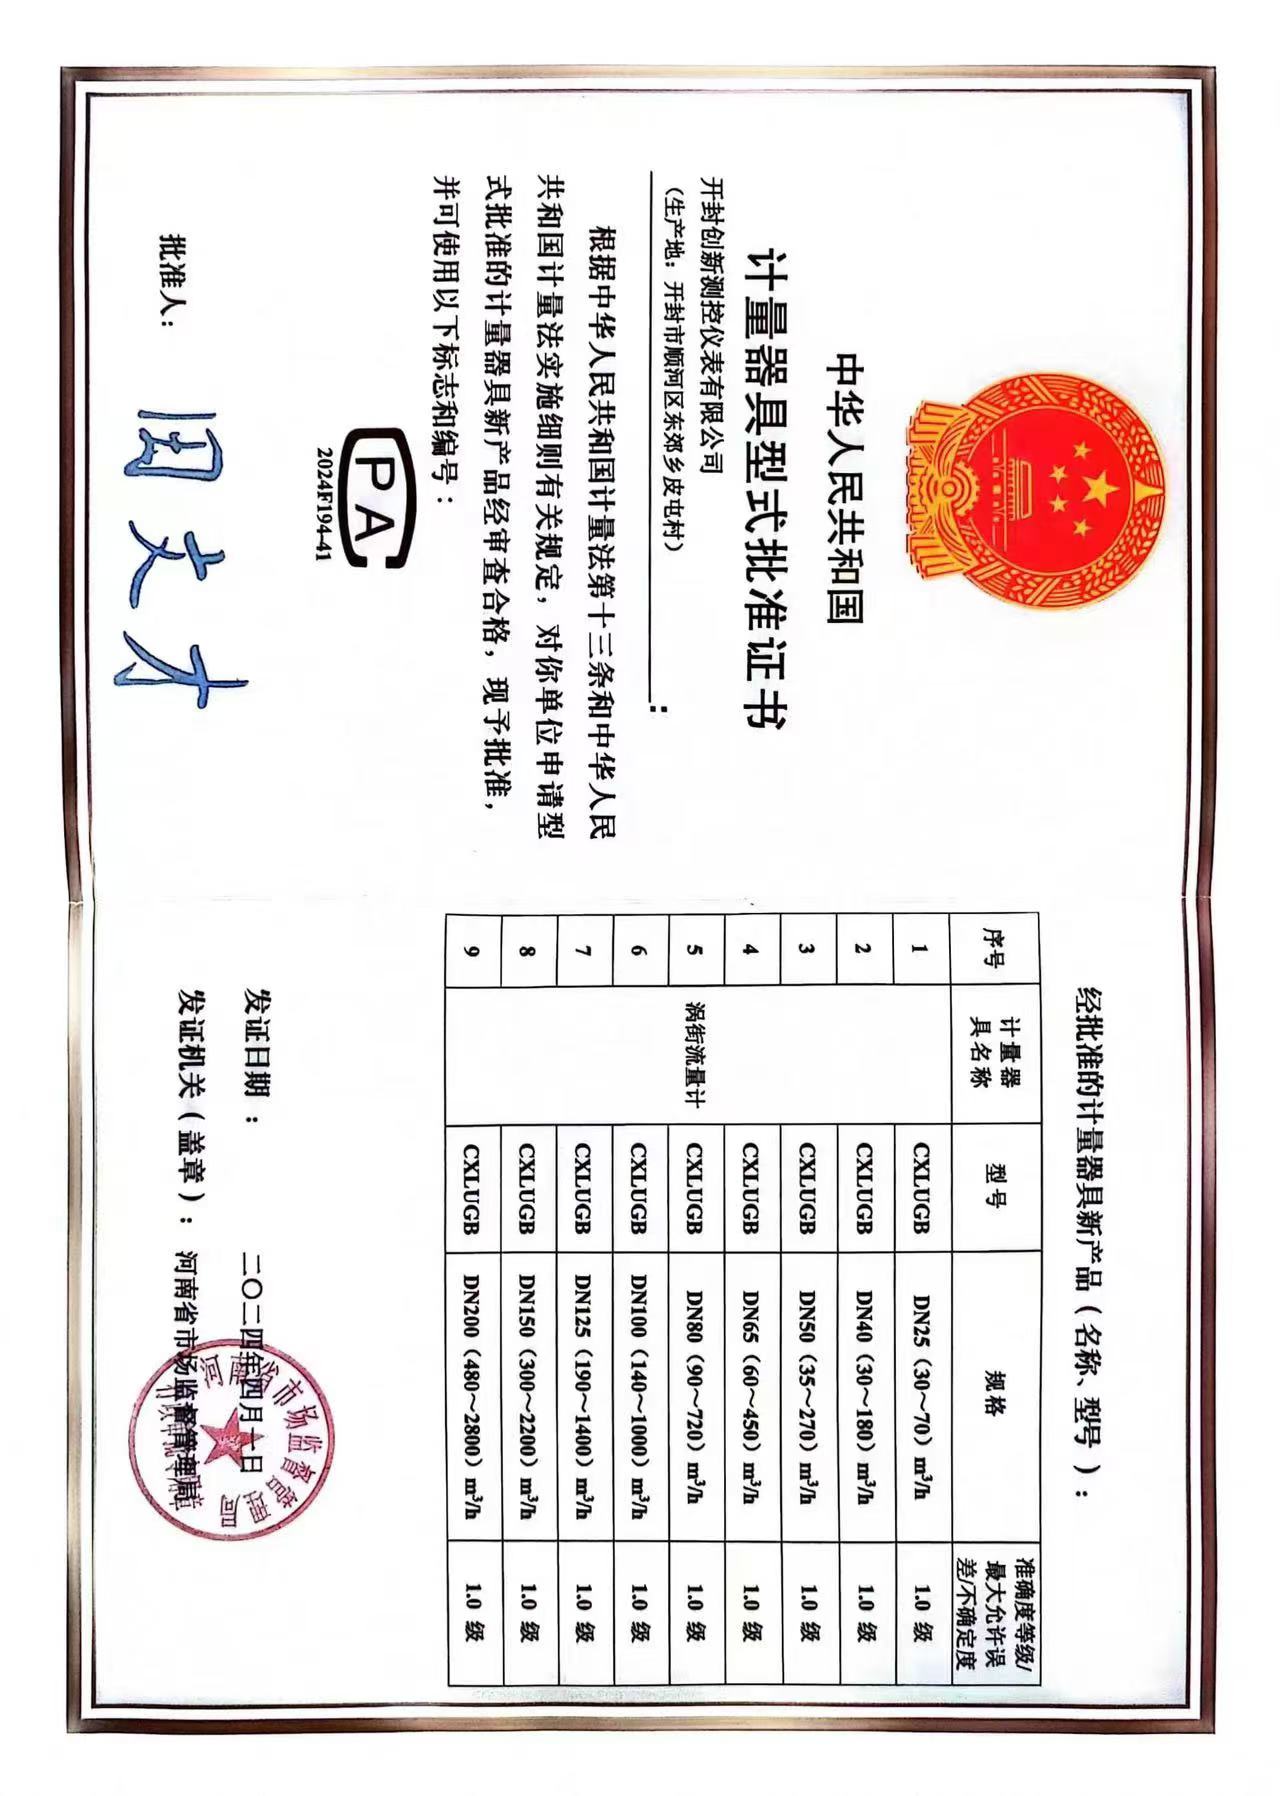 中华人民共和国
计量器具型式批准证书
开封创新测控仪表有限公司
(生产地：开封市顺河区东郊乡皮屯村)
：
根据中华人民共和国计量法第十三条和中华人民
共和国计量法实施细则有关规定，对你单位申请型
式批准的计量器具新产品经审查合格，现予批准，
并可使用以下标志和编号：
PA
2024F194-41
批准人：
周文才
经批准的计量器具新产品（名称、型号）：
序号 计量器具名称 型号 规格 准确度等级/最大允许误差/不确定度
1 CXLUGB DN25（30～70）m³/h 1.0 级
2 CXLUGB DN40（30～180）m³/h 1.0 级
3 CXLUGB DN50（35～270）m³/h 1.0 级
4 CXLUGB DN65（60～450）m³/h 1.0 级
5 涡街流量计 CXLUGB DN80（90～720）m³/h 1.0 级
6 CXLUGB DN100（140～1000）m³/h 1.0 级
7 CXLUGB DN125（190～1400）m³/h 1.0 级
8 CXLUGB DN150（300～2200）m³/h 1.0 级
9 CXLUGB DN200（480～2800）m³/h 1.0 级
发证日期： 二〇二四年四月一日
发证机关（盖章）：河南省市场监督管理局
河南省市场监督管理局